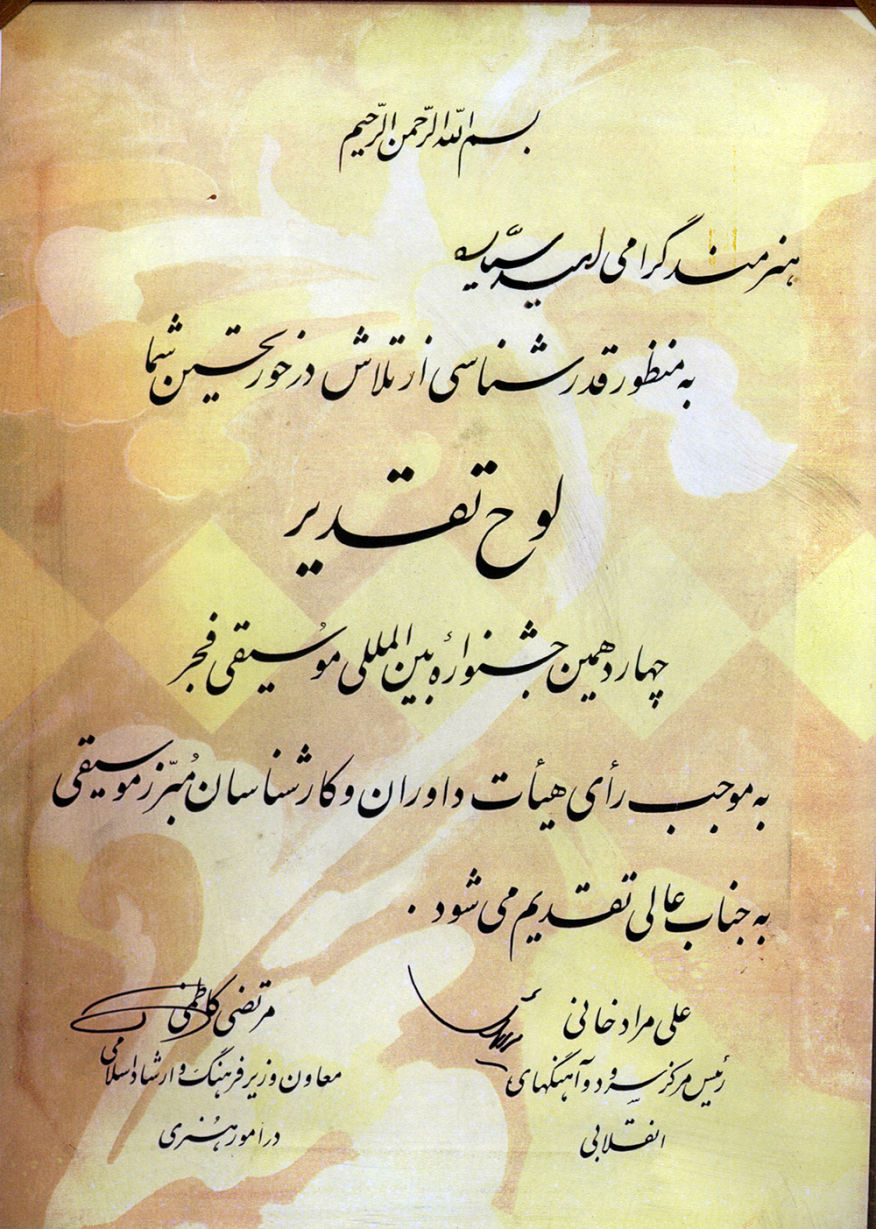 بسم الله الرحمن الرحیم
هنرمند گرامی امید سیاره
به منظور قدرشناسی از تلاش درخور تحسین شما
لوح تقدیر
چهاردهمین جشنوارهٔ بین المللی موسیقی فجر
به موجب رأی هیأت داوران و کارشناسان مُبرّز موسیقی
به جناب عالی تقدیم می شود .
علی مرادخانی
رئیس مرکز سرود و آهنگهای
انقلابی
مرتضی کاظمی
معاون وزیر فرهنگ و ارشاد اسلامی
در امور هُنری